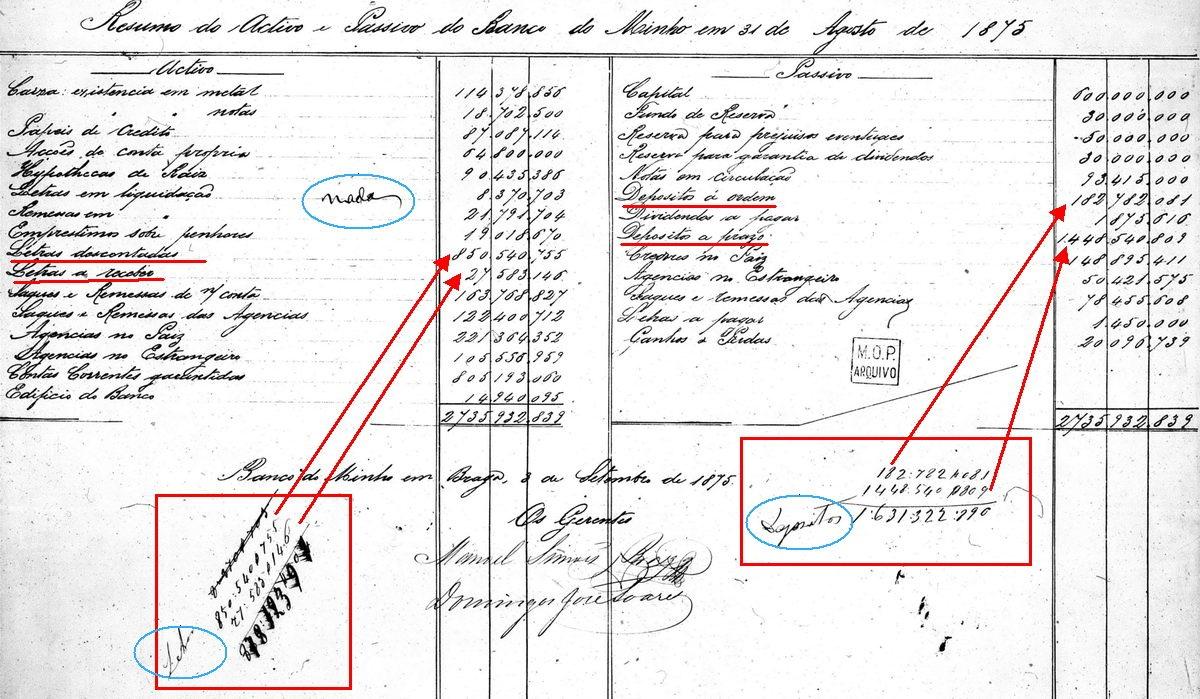 Resumo do Activo e Passivo do Banco do Minho em 31 de Agosto de 1875
Activo
Caixa: existencia em metal 114.378.856
" " " notas 18.702.500
Papeis de Credito 87.087.114
Acções de conta propria 64.800.000
Hypothecas de Raiz 90.435.386
Letras em liquidação 8.370.703
nada
Remessas em " 21.791.704
Emprestimos sobre penhores 19.018.670
Letras descontadas 850.540.755
Letras a receber 27.583.146
Saques e Remessas de n/ conta 163.768.827
Saques e Remessas das Agencias 122.400.712
Agencias no Paiz 221.364.352
Agencias no Estrangeiro 105.556.959
Contas Correntes garantidas 805.193.060
Edificio do Banco 14.940.095
2735.932.839
Passivo
Capital 600.000.000
Fundo de Reserva 30.000.000
Reserva para prejuisos eventuaes 50.000.000
Reserva para garantia de dividendos 30.000.000
Notas em circulação 93.415.000
Depositos á ordem 182.782.081
Dividendos a pagar 1.875.616
Depositos a prazo 1.448.540.809
Credores no Paiz 148.895.411
Agencias no Estrangeiro 50.421.575
Saques e remessas das Agencias 78.455.608
Letras a pagar 1.450.000
Ganhos e Perdas 20.096.739
M.O.P.
ARQUIVO
2735.932.839
Banco do Minho em Braga, 3 de Setembro de 1875.
Os Gerentes
Manoel Simões Braga
Domingos José Soares
850.540.755
27.583.146
Let
182.782.081
1.448.540.809
Depositos 1.631.322.890